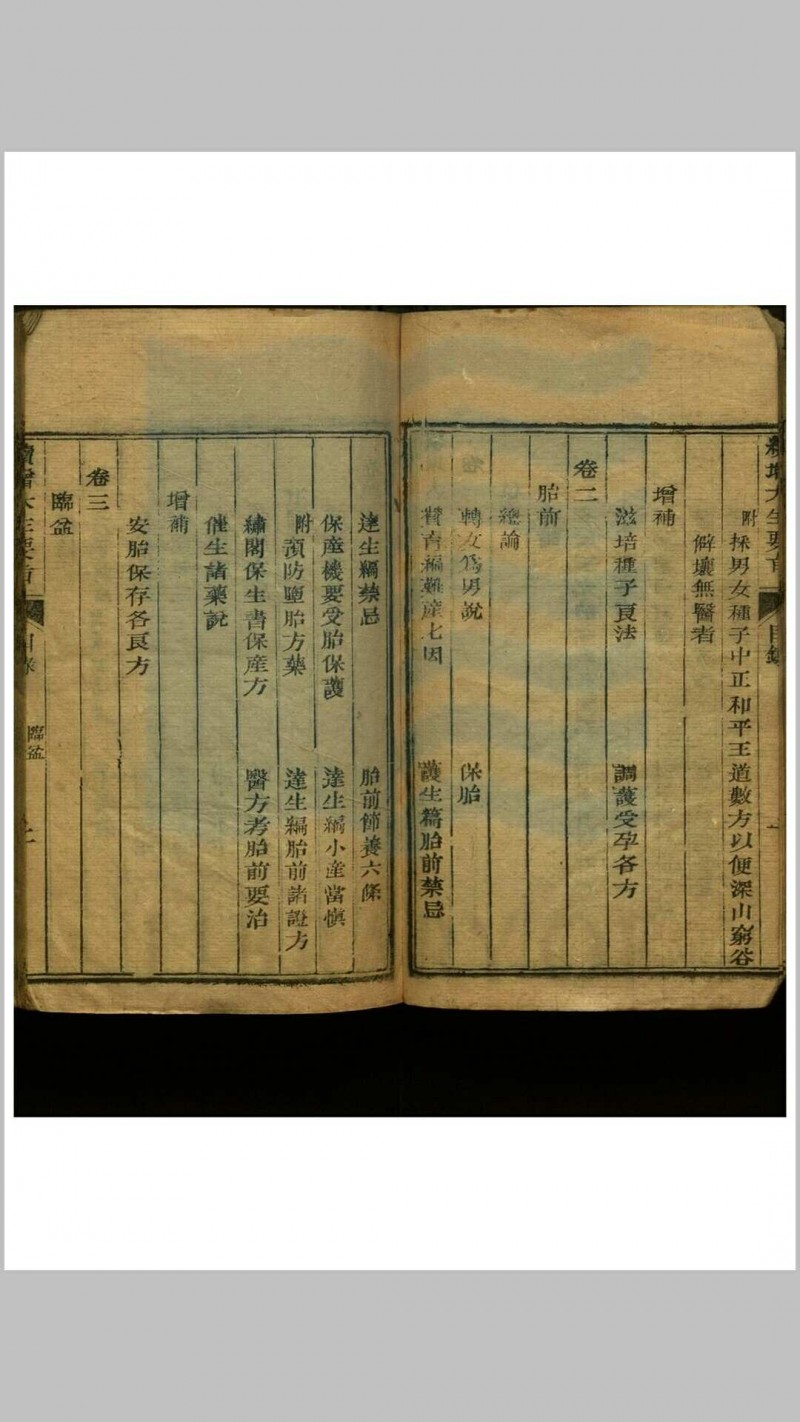 續增大生要旨 目錄 一
附採男女種子中正和平王道數方以便深山窮谷
僻壤無醫者
增補
滋培種子良法 調護受孕各方
卷二
胎前
總論
轉女爲男說 保胎
贊育編難產七因 護生篇胎前禁忌
達生編禁忌 胎前節養六條
保產機要受胎保護 達生編小產當愼
附預防墮胎方藥 達生編胎前諸證方
繡閣保生書保產方 醫方考胎前要治
催生諸藥說
增補
安胎保存各良方
卷三
臨盆
續增大生要旨 目錄 臨盆